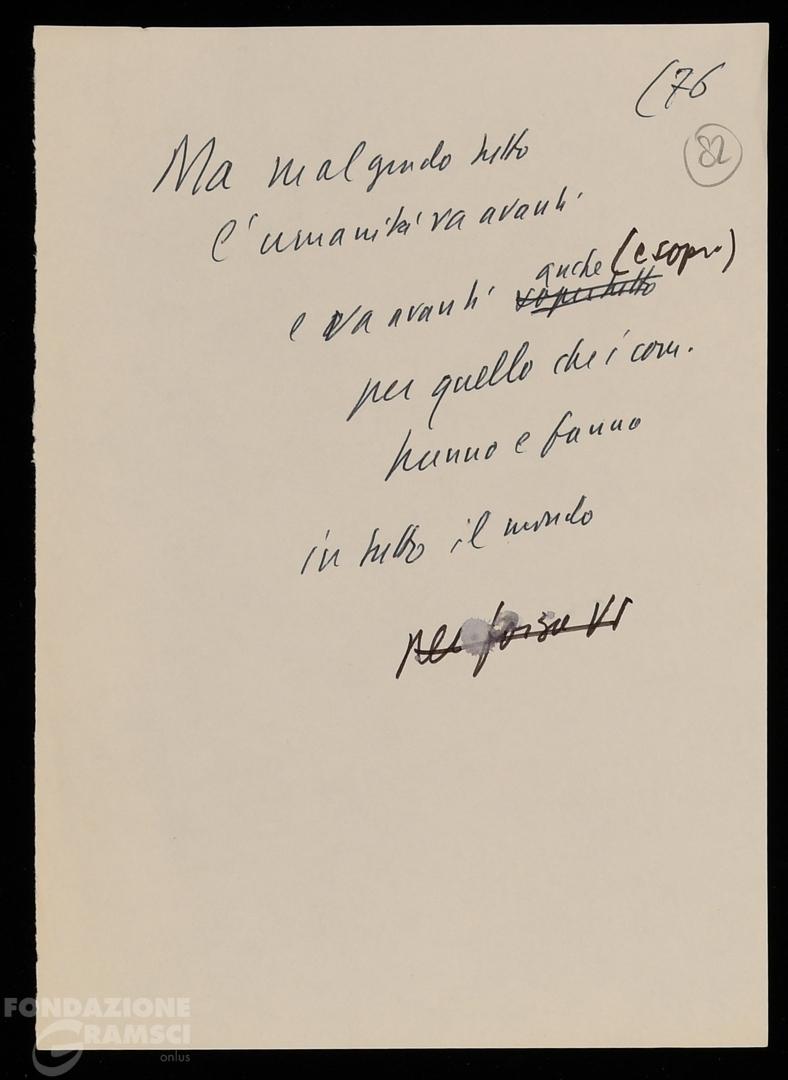 (76
82
Ma malgrado tutto
l'umanità va avanti
anche (e sopr.)
e va avanti soprattutto
per quello che i com.
hanno e fanno
in tutto il mondo
per forza
FONDAZIONE
GRAMSCI
onlus